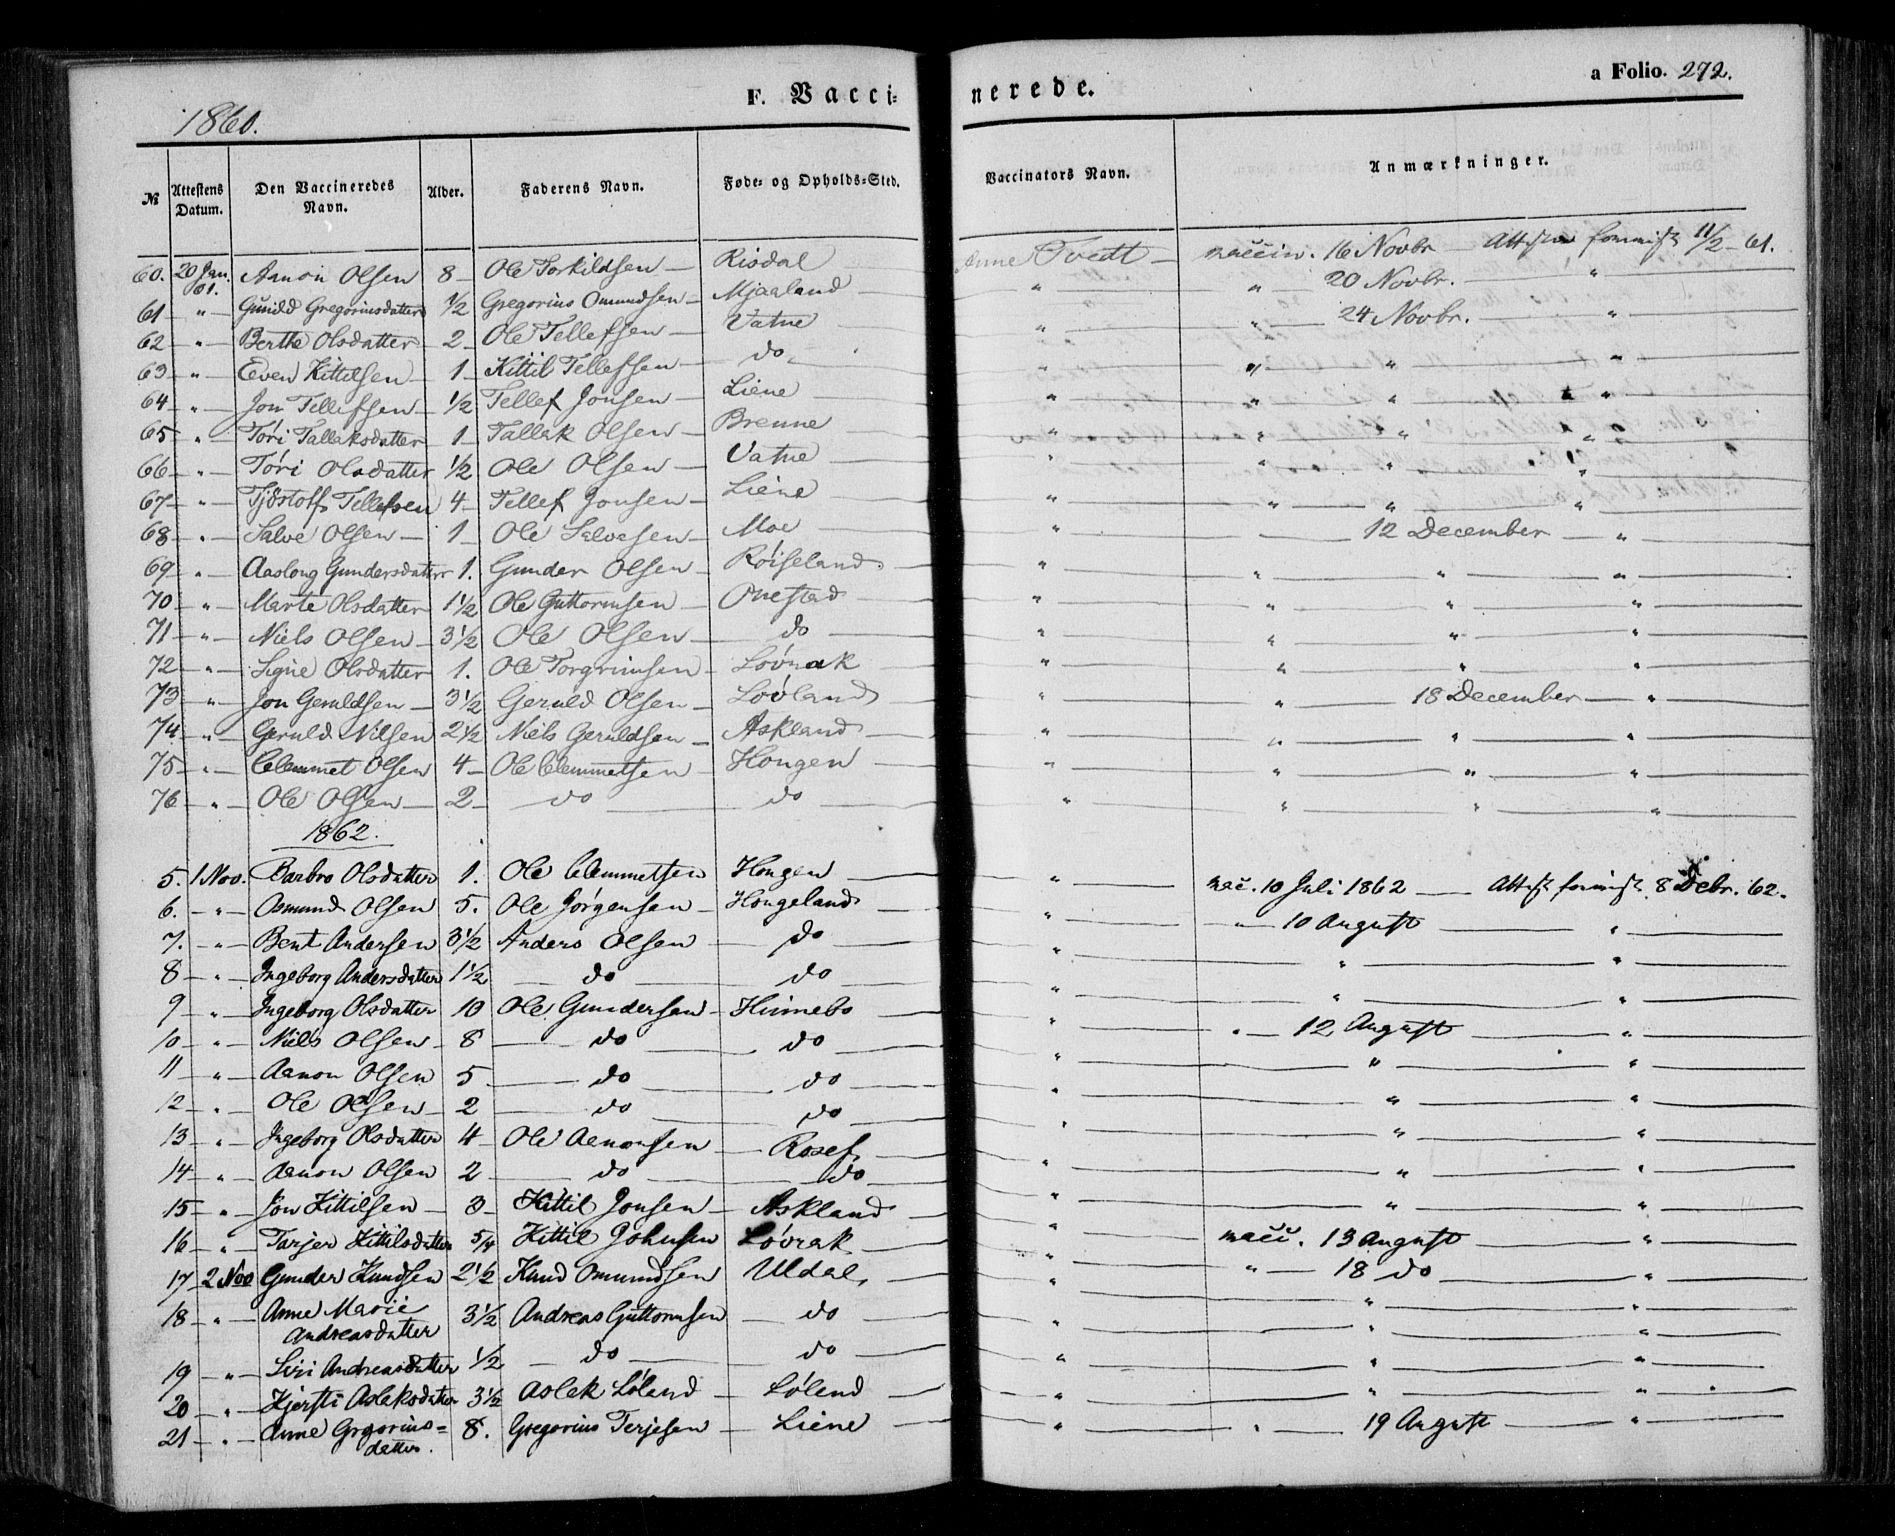 F. Vacci= nerede. a Folio. 292.
1860.
№ Attestens Datum. Den Vaccineredes Navn. Alder. Faderens Navn. Føde- og Opholds-Sted. Vaccinators Navn. Anmærkninger.
60. 20 Jan. 61. Aanon Olsen 8 Ole Torkildsen Risdal Anne Tvedt vaccin. 16 Novbr 11/2 61.
61 " Gunild Gregoriusdatter 1/2 Gregorius Omundsen Mjaaland " " 20 Novbr. "
62 " Berthe Olsdatter 2 Ole Tellefsen Vatne " " 24 Novbr. "
63 " Even Kittilsen 1 Kittil Tellefsen do " " " "
64 " Jon Tellefsen 1/2 Tellef Jonsen Liene " " " "
65 " Tóri Tallaksdatter 1 Tallak Olsen Brenne " " " "
66 " Tóri Olsdatter 1/2 Ole Olsen Vatne " " " "
67 " Tjöstolf Tellefsen 4 Tellef Jonsen Liene " " " "
68 " Salve Olsen 1 Ole Salvesen Moe " 12 December "
69 " Aaslong Gundersdatter 1. Gunder Olsen Róiseland " " " "
70 " Marte Olsdatter 1 1/2 Ole Guttormsen Onestad " " " "
71 " Niels Olsen 3 1/2 Ole Olsen do " " " "
72 " Signe Olsdatter 1. Ole Torgrimsen Lóvrak " " " "
73 " Jon Geruldsen 3 1/2 Geruld Olsen Lóvland " " 18 December "
74 " Geruld Nilsen 2 1/2 Niels Geruldsen Askland " " " "
75 " Clemmet Olsen 4 Ole Clemmetsen Hongen " " " "
76 " Ole Olsen 2 do do " " " "
1862.
5. 1 Nov. Barbro Olsdatter 1. Ole Clemmetsen Hongen " vac. 10 Juli 1862 8 Debr. 62.
6. " Osmund Olsen 5. Ole Jørgensen Hongeland " " 10 August "
7. " Bent Andersen 3 1/2 Anders Olsen do " " "
8 " Ingeborg Andersdatter 1 1/2 do do " " "
9 " Ingeborg Olsdatter 10 Ole Gundersen Hinnebo " " 12 August "
10 " Niels Olsen 8 do do " " "
11 " Aanon Olsen 5 do do " " "
12 " Ole Olsen 2 do do " " "
13 " Ingeborg Olsdatter 4 Ole Aanonsen Rosef. " " "
14 " Aanon Olsen 2 do do " " "
15 " Jon Kittilsen 3 Kittil Jonsen Askland " vacc. 13 August "
16 " Tarjer Kittilsdatter 5/4 Kittil Johnsen Lóvrak " " 18 do "
17 2 Nov Gunder Knudsen 2 1/2 Knud Omundsen Uldal " " "
18 " Anne Marie
Andreasdatter 3 1/2 Andreas Guttormsen do " " "
19 " Siri Andreasdatter 1/2 do do " " "
20 " Kjersti Aslaksdatter 3 1/2 Aslak Lóland Lóland " " "
21 " Anne Grgorius=
datter. 8. Gregorius Terjesen Liene " " 19 August "